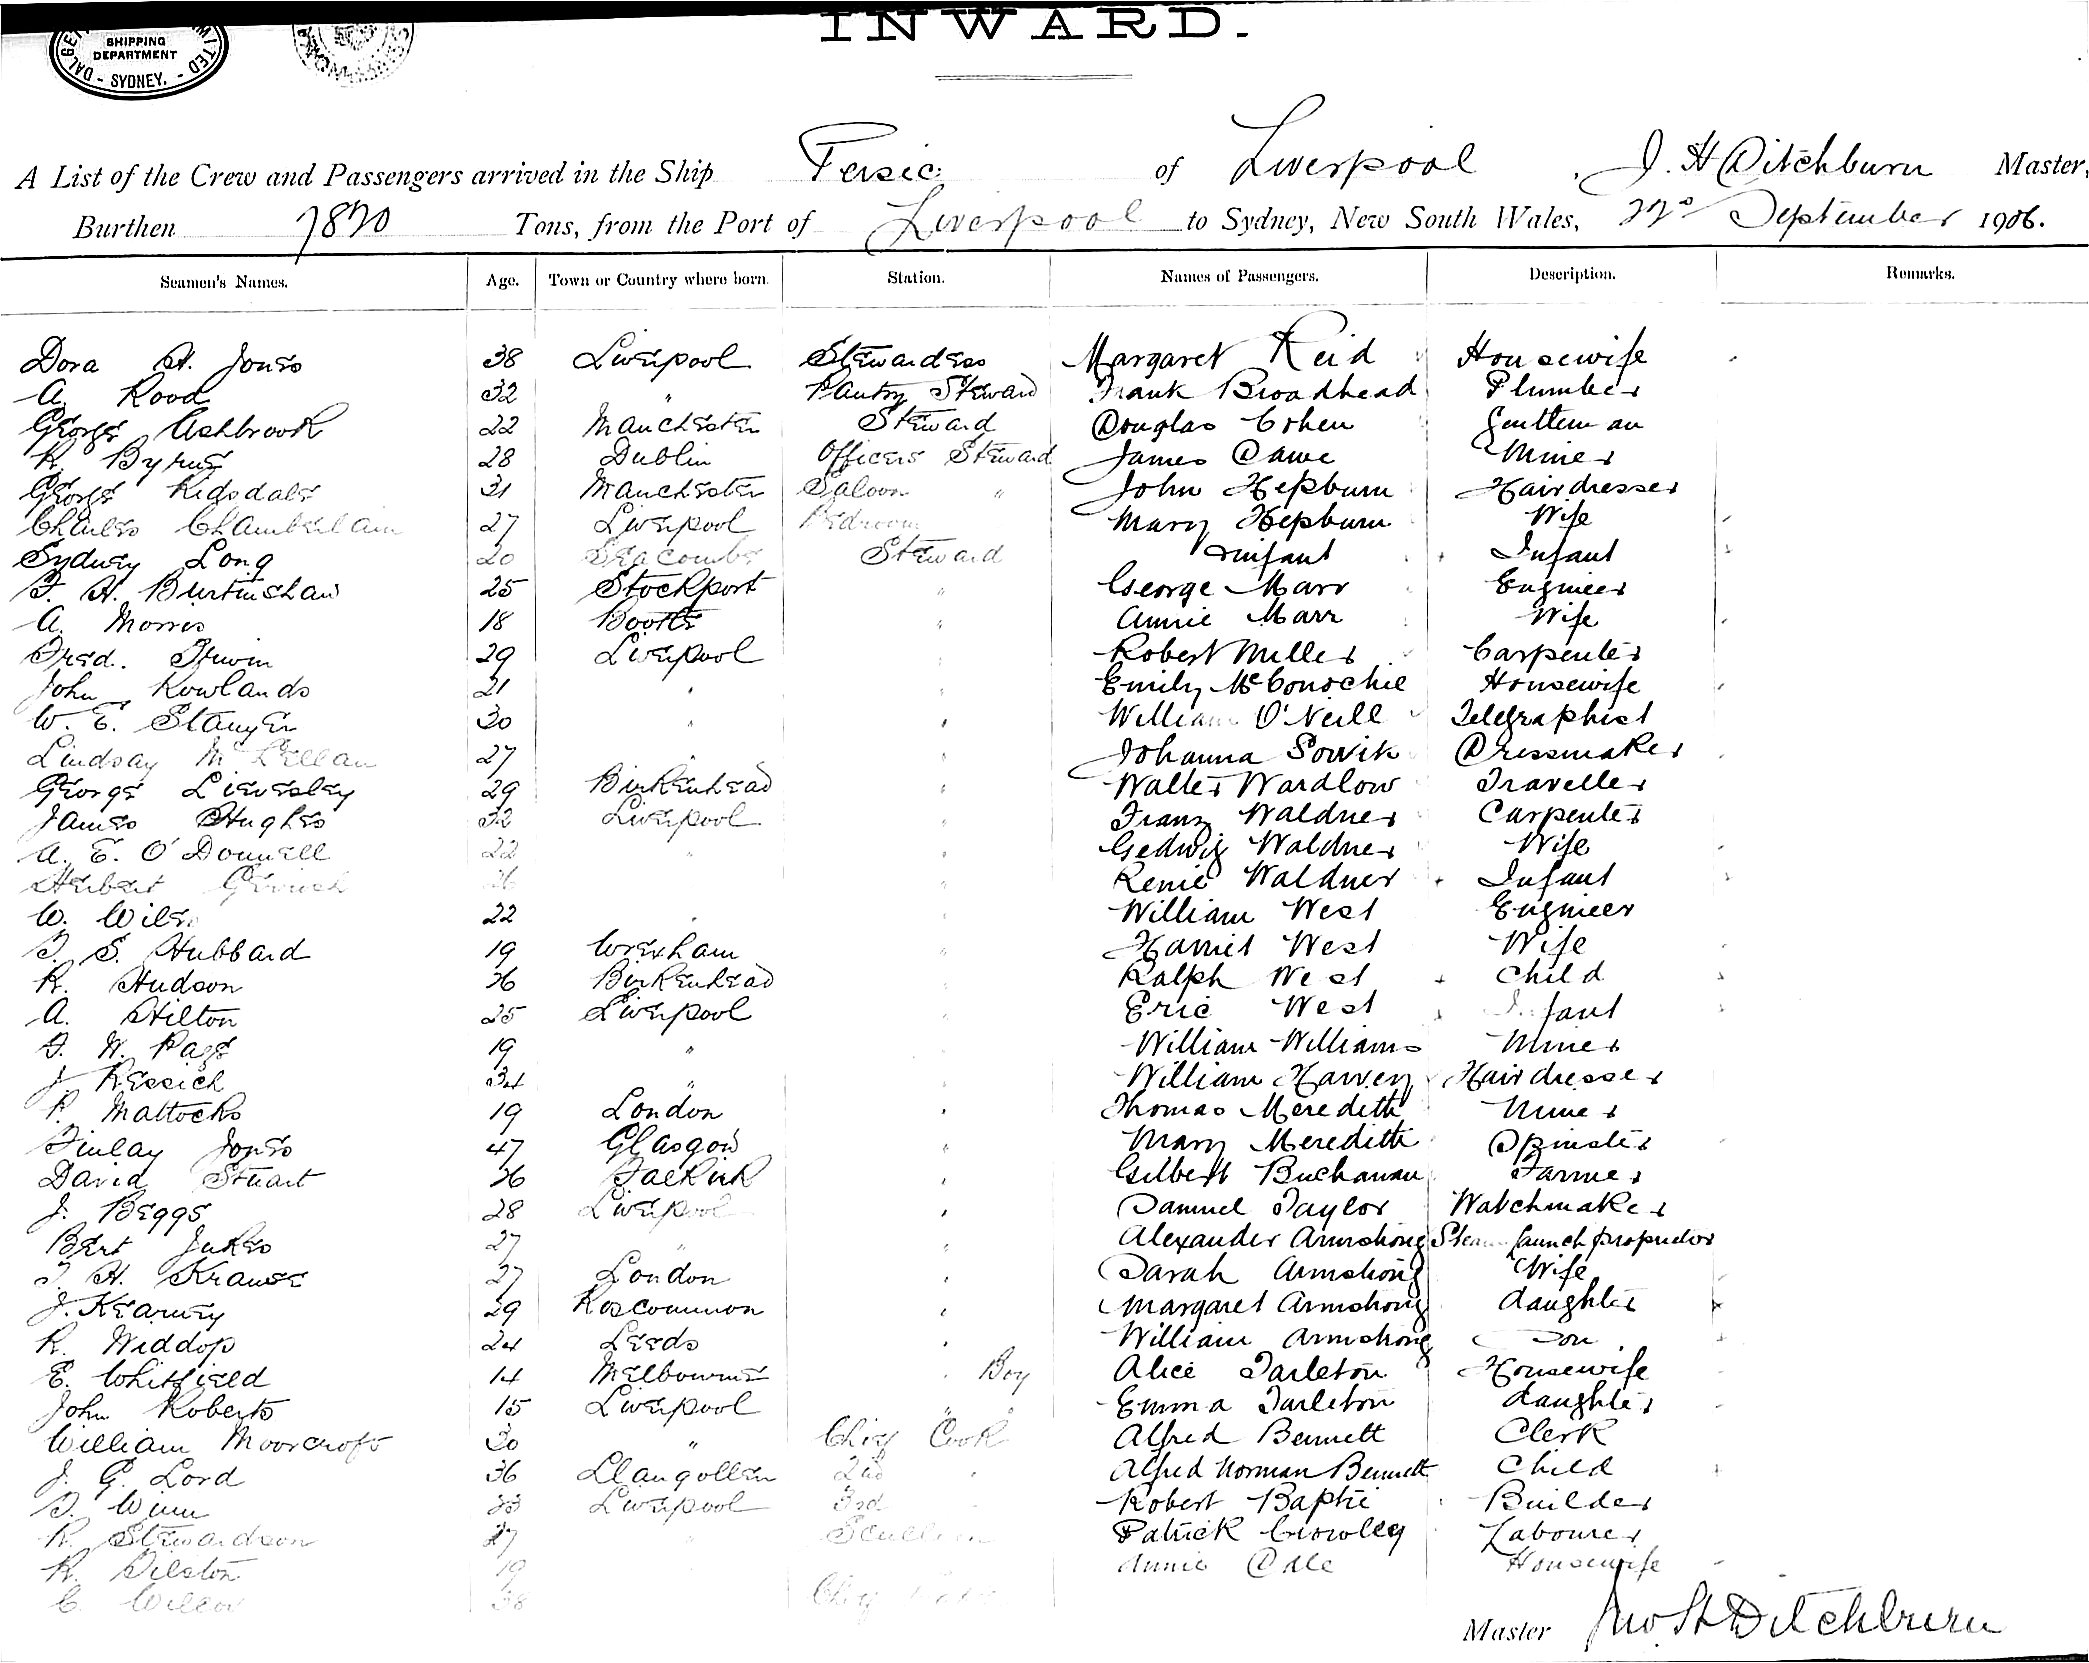 INWARD.
SHIPPING
DEPARTMENT
- SYDNEY. -
A List of the Crew and Passengers arrived in the Ship Persic of Liverpool, J. H Ditchburn Master,
Burthen 7820 Tons, from the Port of Liverpool to Sydney, New South Wales, 22nd September 1906.
Seamen's Names. Age. Town or Country where born. Station. Names of Passengers. Description. Remarks.
Dora H. Jones 38 Liverpool Stewardess Margaret Reid Housewife
A. Rood 32 " Pantry Steward Frank Broadhead Plumber
George Ashbrook 22 Manchester Steward Douglas Cohen Gentleman
R. Byrne 28 Dublin Officers Steward James Cawe Miner
George Ridsdale 31 Manchester Saloon " John Hepburn Hairdresser
Charles Chamberlain 27 Liverpool Bedroom Mary Hepburn Wife
Sydney Long 20 Seacombe Steward infant Infant
F. H. Burtinshaw 25 Stockport " George Marr Engineer
A. Morris 18 Bootle " Annie Marr Wife
Fred. Irwin 29 Liverpool " Robert Miller Carpenter
John Rowlands 21 " " Emily McConochie Housewife
W. E. Stanger 30 " " William O'Neill Telegraphist
Lindsay McLellan 27 " " Johanna Sowik Dressmaker
George Lieversley 29 Birkenhead " Walter Wardlow Traveller
James Hughes 32 Liverpool " Franz Waldner Carpenter
A. E. O'Donnell 22 " " Gedwig Waldner Wife
Herbert 26 " Renie Waldner Infant
W. 22 " " William West Engineer
T. S. Hubbard 19 Wrexham " Harriet West Wife
R. Hudson 26 Birkenhead " Ralph West Child
A. Hilton 25 Liverpool " Eric West Infant
F. W. Page 19 " " William Williams Miner
J. Kessich 34 " " William Harvey Hairdresser
P. Mattocks 19 London " Thomas Meredith Miner
Finlay Jones 47 Glasgow " Mary Meredith Spinster
David Stuart 26 Falkirk " Gilbert Buchanan Farmer
J. Beggs 28 Liverpool " Samuel Taylor Watchmaker
Bert Jukes 27 " " Alexander Armstrong Steam launch proprietor
T. H. Krause 27 London " Sarah Armstrong Wife
J. Kearney 29 Roscommon " Margaret Armstrong daughter
R. Widdop 24 Leeds " William Armstrong Son
E. Whitfield 14 Melbourne " Boy Alice Tarleton Housewife
John Roberts 15 Liverpool " " Emma Tarleton daughter
William Moorcroft 30 " Chief Cook Alfred Bennett Clerk
J. G. Lord 36 Llangollen 2nd " Alfred Norman Bennett Child
T. Winn 33 Liverpool 3rd Robert Baptie Builder
R. Stewardson 27 " Scullion Patrick Crowley Labourer
R. Gilston 19 Annie Dale Housewife
C. 38 Chief
Master Jno. H Ditchburn